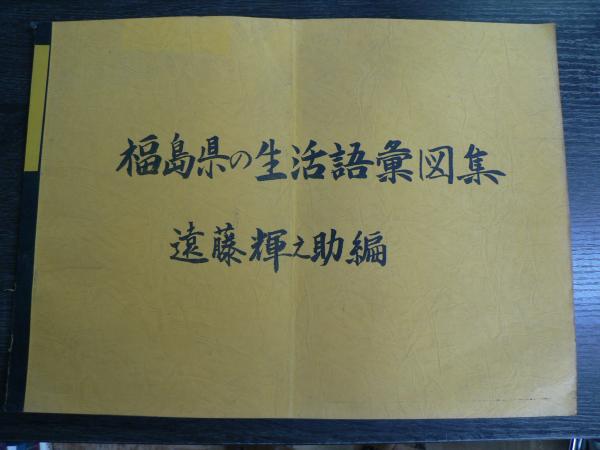 福島県の生活語彙図集
遠藤輝之助編